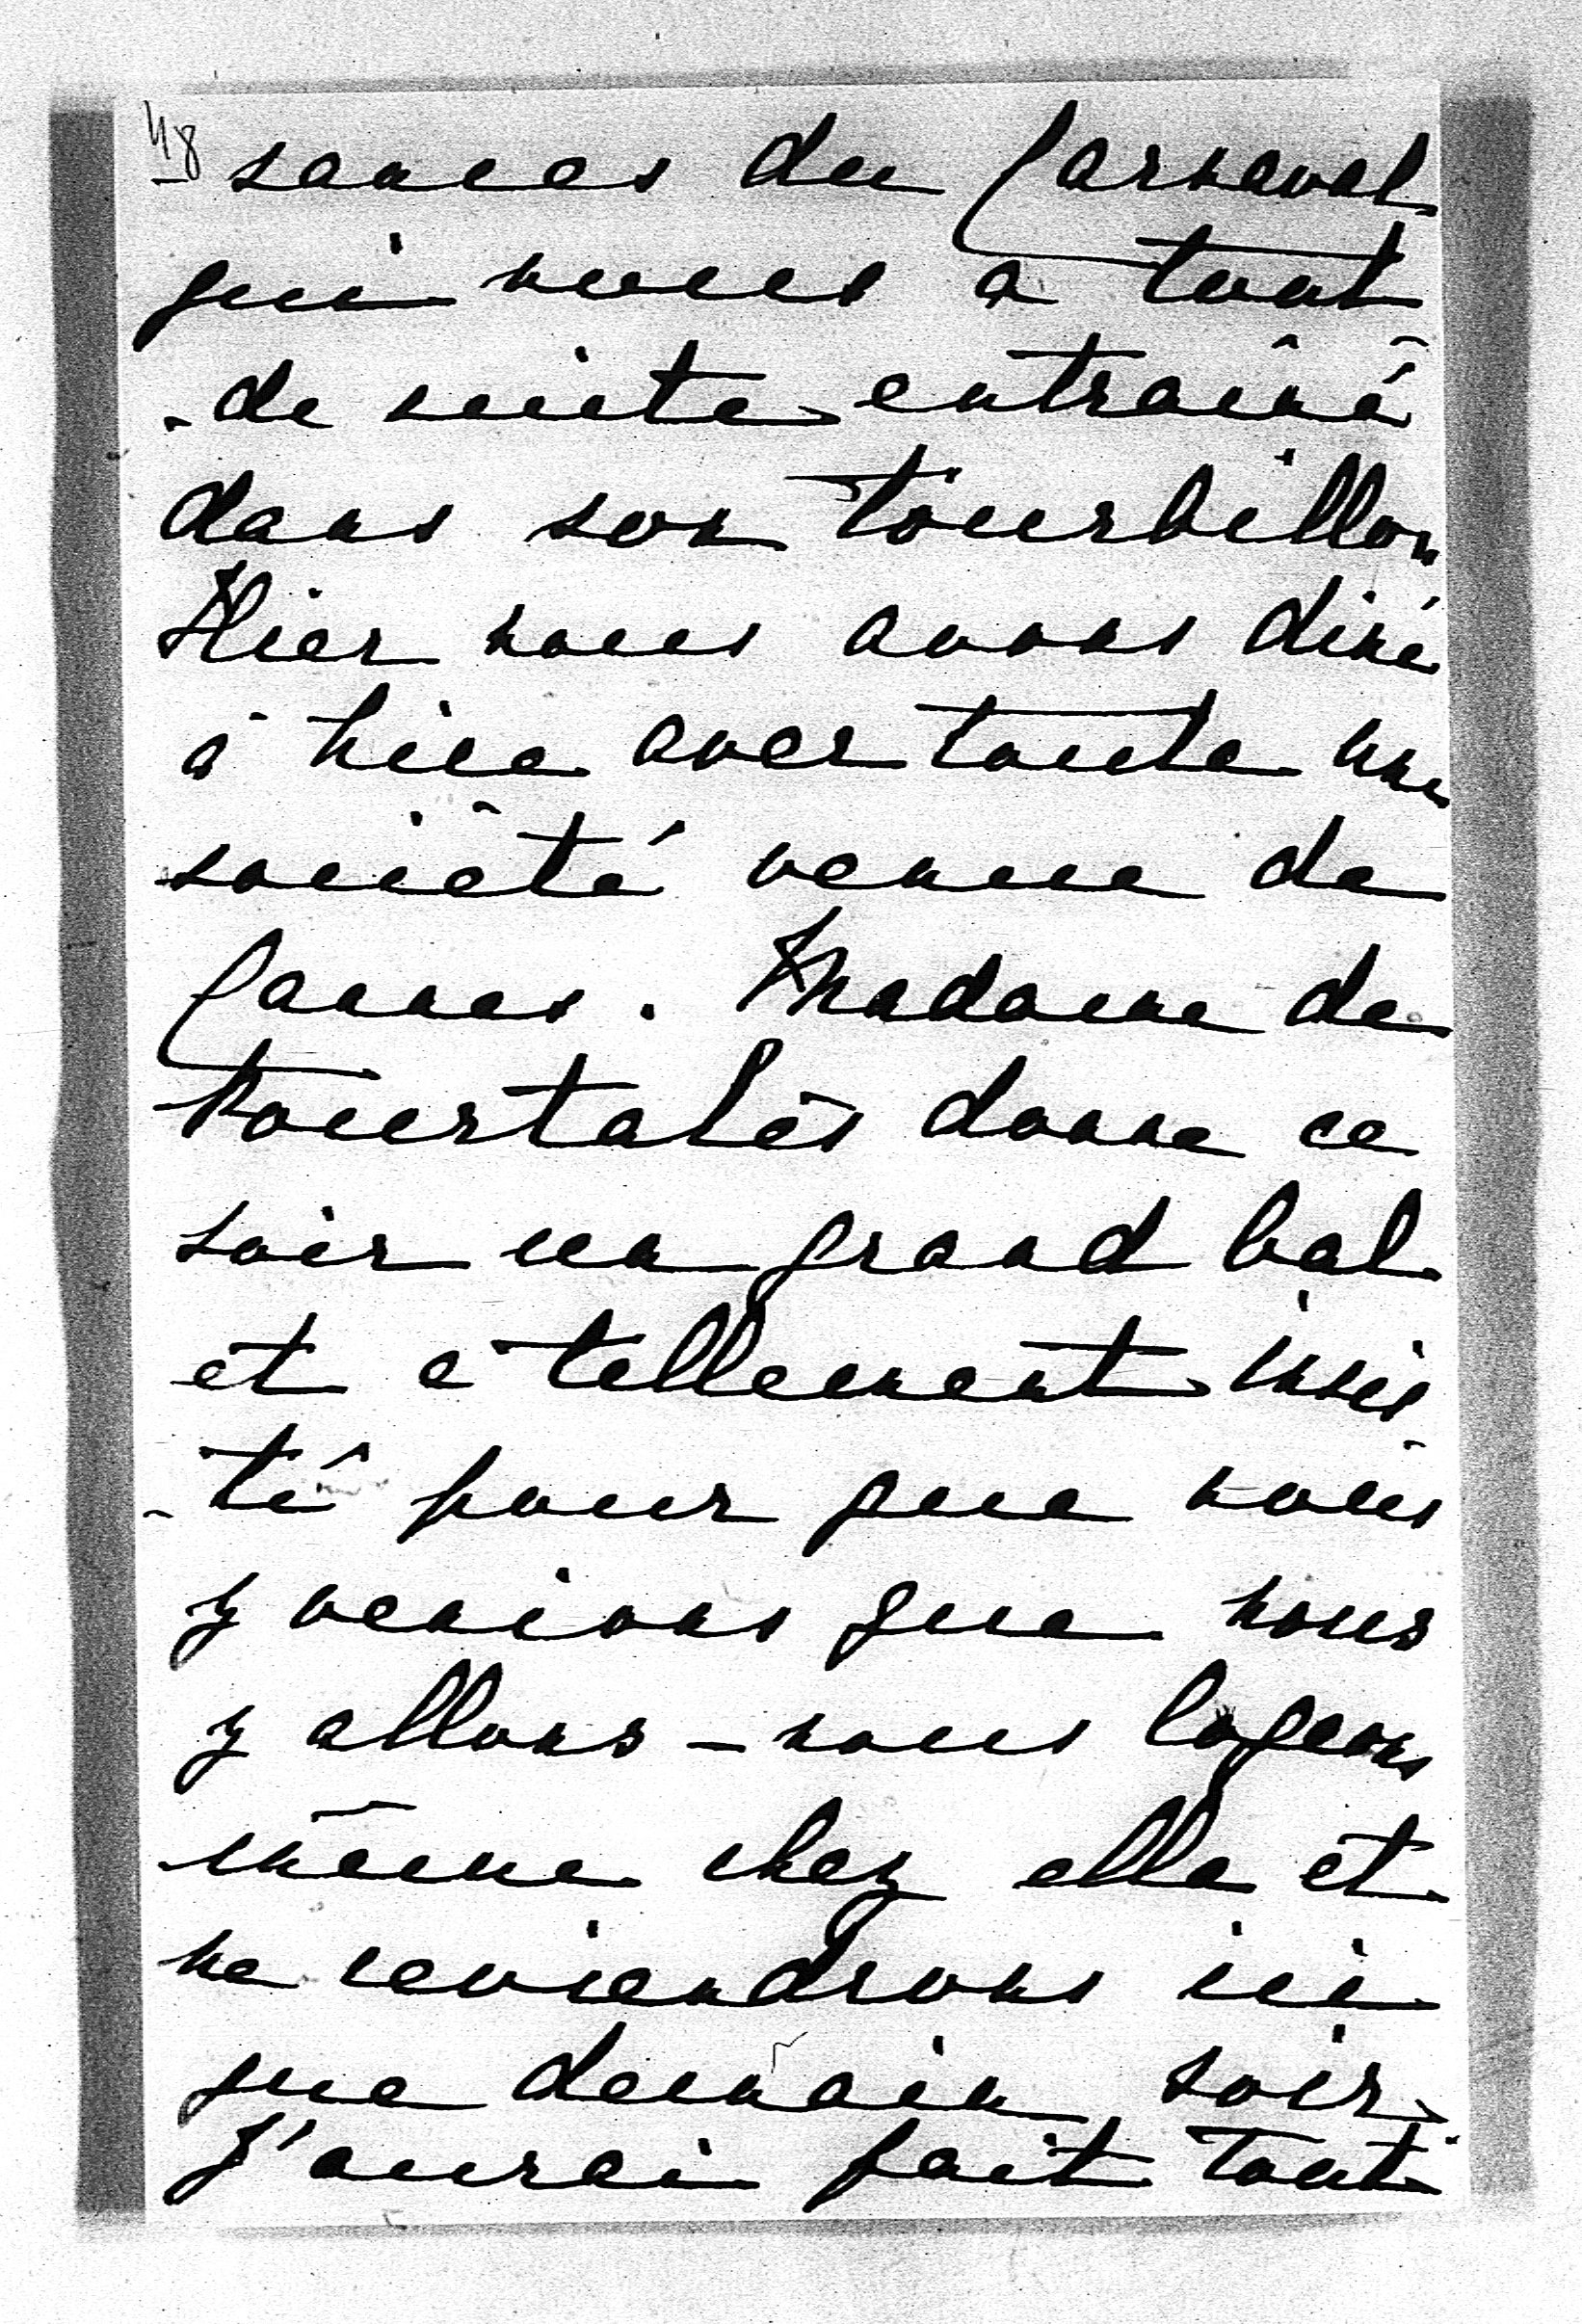 48
sances du Carnaval
qui nous a tout
-de suite entraîné
dans son tourbillon
Hier nous avons diné
à Nice avec toute une
société venue de
Cannes. Madame de
Pourtalès donne ce
soir un grand bal
et a tellement insis
-té pour que nous
y venions que nous
y allons - nous logeons
même chez elle et
ne reviendrons ici
que demain soir.
J'aurai fait tout